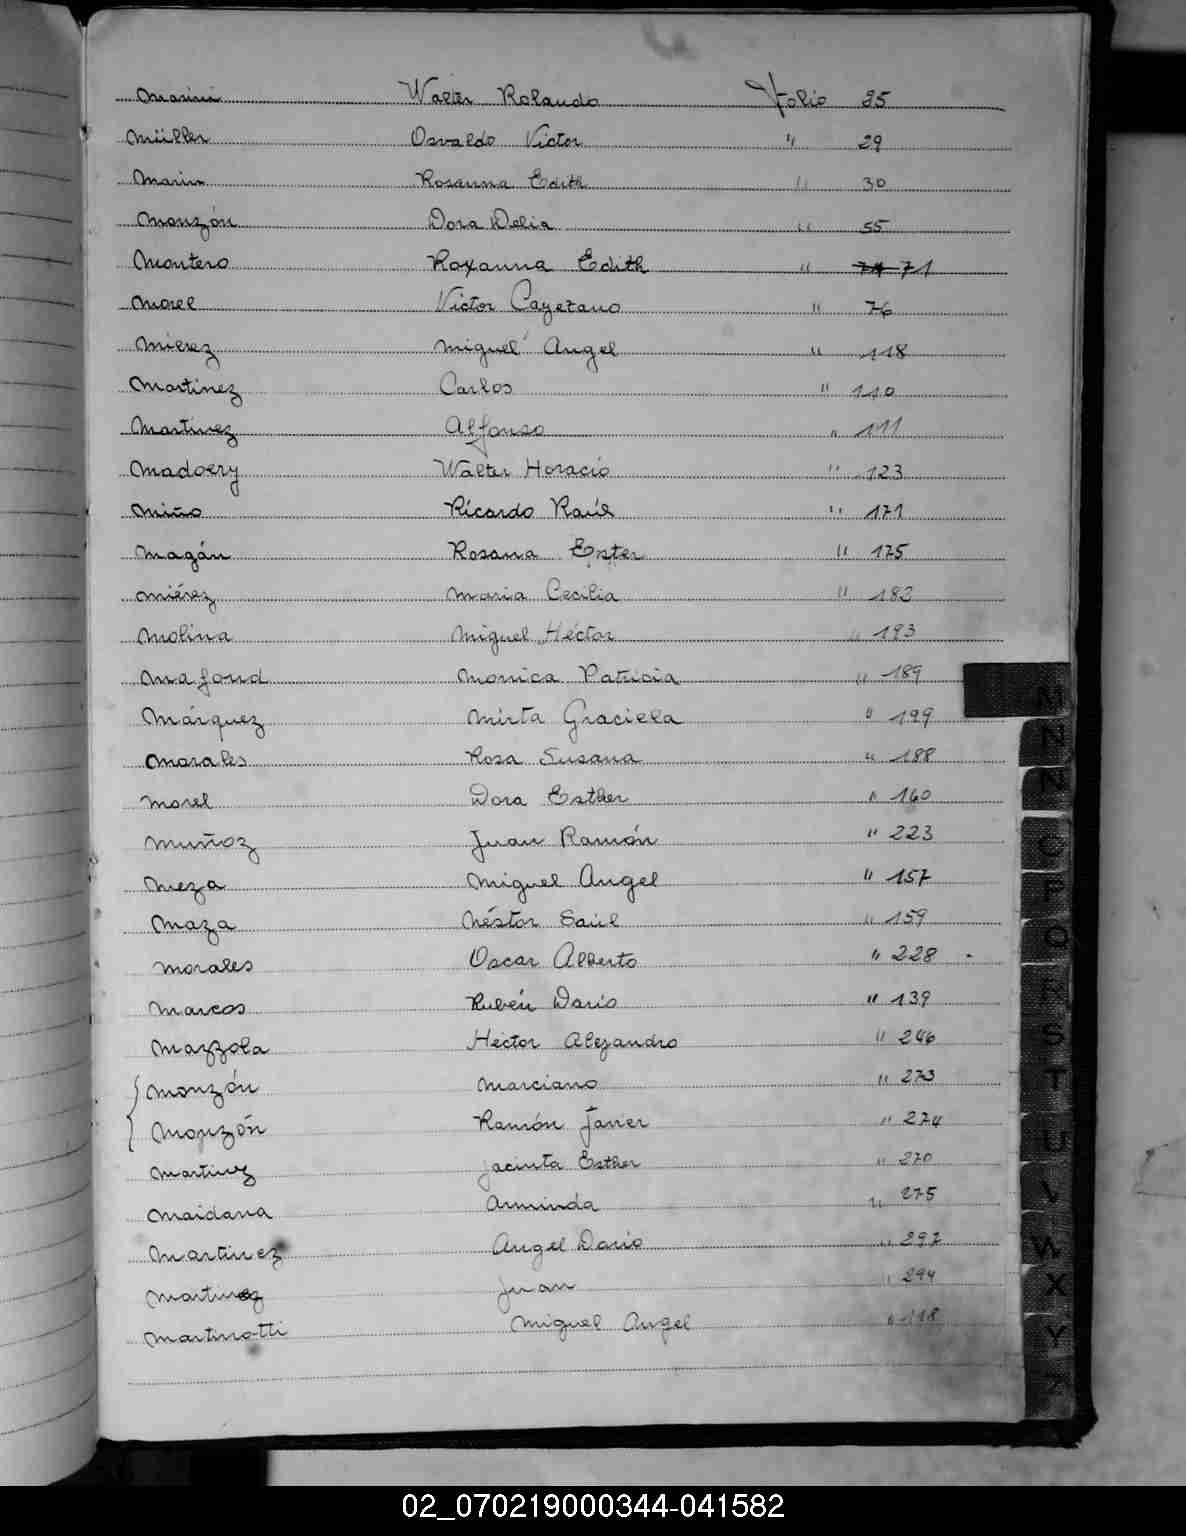 Marini Walter Rolando Folio 25
Müller Osvaldo Victor " 29
Marin Rosanna Edith " 30
Monzón Dora Delia " 55
Montero Roxanna Edith " 71
Morel Victor Cayetano " 76
Mierez Miguel Angel " 118
Martinez Carlos " 110
Martinez Alfonso " 111
Madoery Walter Horacio " 123
Miño Ricardo Raúl " 171
Magán Rosana Ester " 175
Miérez Maria Cecilia " 182
Molina Miguel Héctor " 193
Mafond Monica Patricia " 189
Márquez Mirta Graciela " 199
Morales Rosa Susana " 188
Morel Dora Esther " 160
Muñoz Juan Ramón " 223
Meza Miguel Angel " 157
Maza Néstor Saúl " 159
Morales Oscar Alberto " 228
Marcos Rubén Dario " 139
Mazzola Héctor Alejandro " 246
Monzón Marciano " 273
Monzón Ramón Javier " 274
Martinez Jacinta Esther " 270
Maidana Arminda " 275
Martinez Angel Dario " 297
Martinez Juan " 294
Martinotti Miguel Angel " 118
M
N
Ñ
O
P
Q
R
S
T
U
V
W
X
Y
Z
02_070219000344-041582